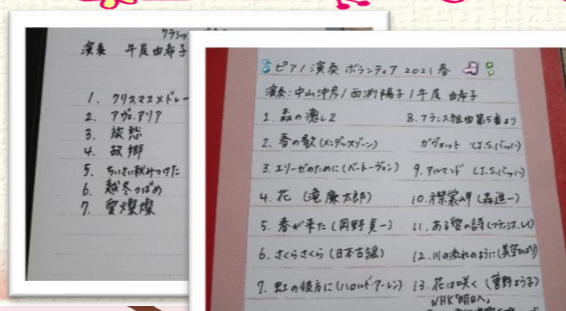 クラシック
演奏 牛尾由希子
1. クリスマスメドレー
2. アヴェ・マリア
3. 旅愁
4. 故郷
5. ちいさい秋みつけた
6. 越冬つばめ
7. 愛燦燦
ピアノ演奏 ボランティア 2021 春
演奏:中山沙房/西渕陽子/牛尾 由希子
1. 森の癒し2
2. 春の歌(メンデルスゾーン)
3. エリーゼのために(ベートーヴェン)
4. 花 (滝廉太郎)
5. 春が来た(岡野貞一)
6. さくらさくら(日本古謡)
7. 虹の彼方に(ハロルド・アーレン)
8. フランス組曲第5番より
ガヴォット (J.S.バッハ)
9. アルマンド (J.S.バッハ)
10. 襟裳岬(森進一)
11. ある愛の詩(フランシス・レイ)
12. 川の流れのように(美空ひばり)
13. 花は咲く (菅野よう子)
NHK「明日へ」